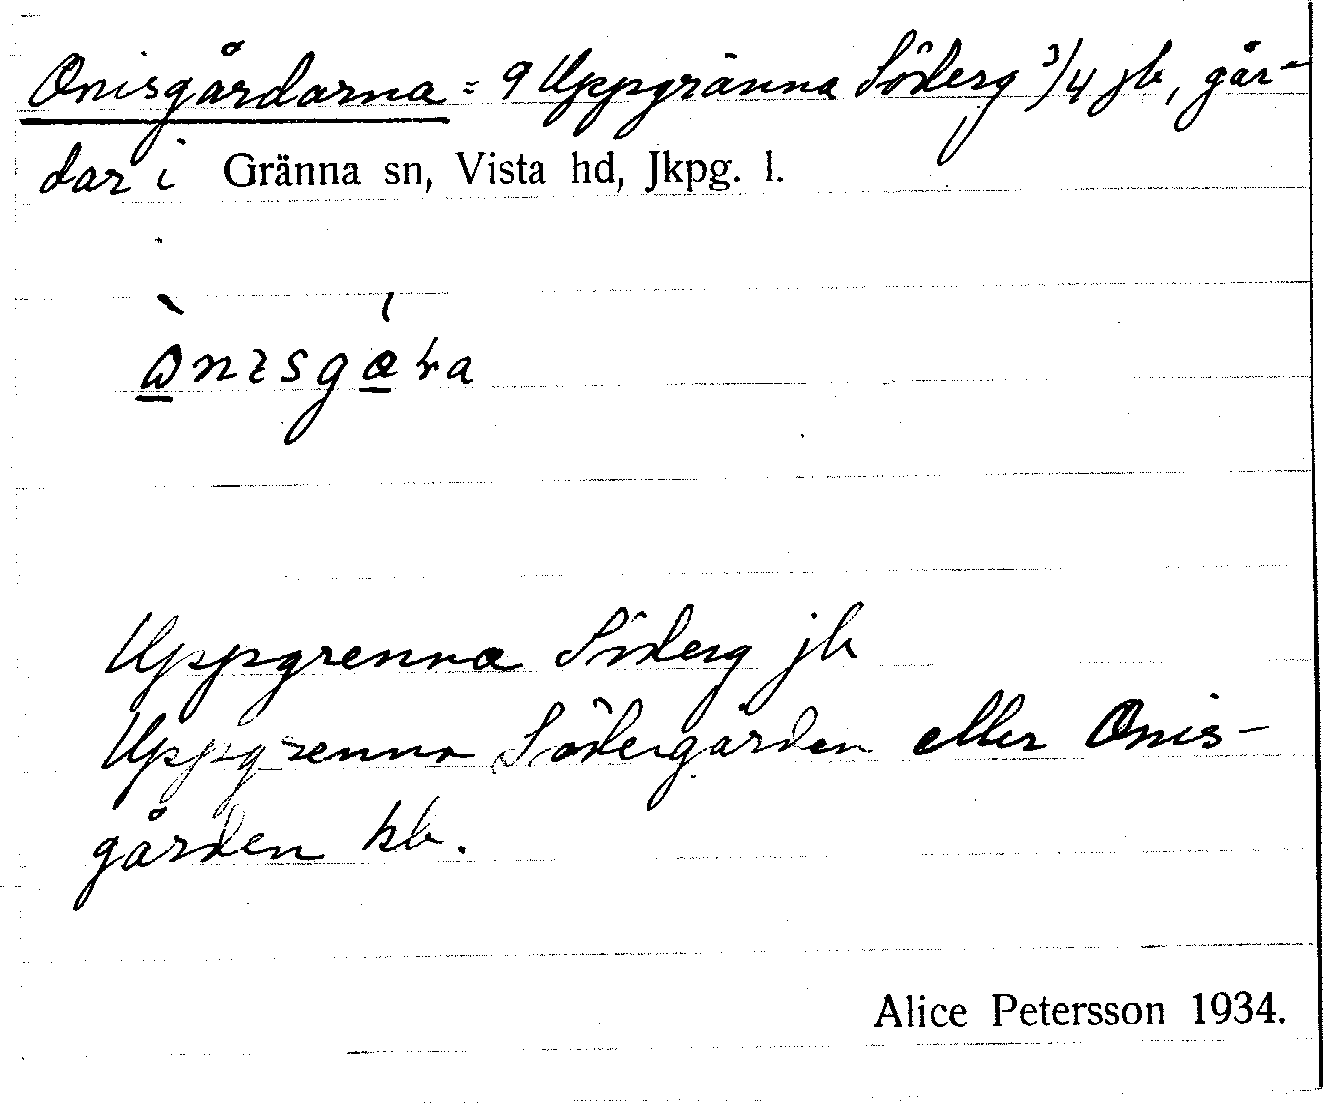 Onisgårdarna = 9 Uppgränna Söderg 3/4 jb, går-
dar i Gränna sn, Vista hd, Jkpg. l.
Uppgrenna Söderg jb
Uppgrenna Södergården eller Onis-
gården kb.
Alice Petersson 1934.